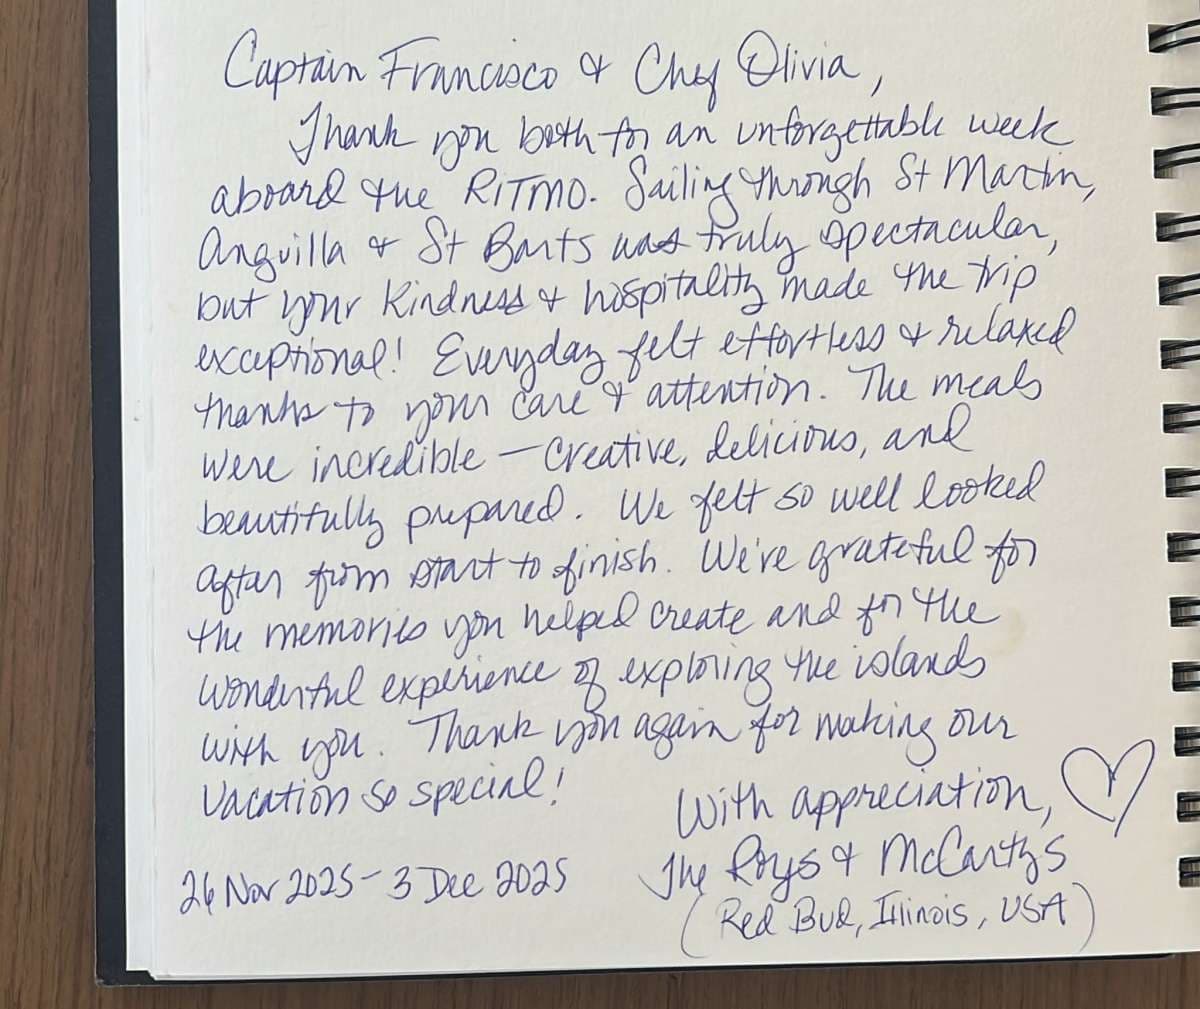 Captain Francisco & Chef Olivia,
Thank you both for an unforgettable week
aboard the RITMO. Sailing through St Martin,
Anguilla & St Barts was truly spectacular,
but your kindness & hospitality made the trip
exceptional! Everyday felt effortless & relaxed
thanks to your care & attention. The meals
were incredible – creative, delicious, and
beautifully prepared. We felt so well looked
after from start to finish. We're grateful for
the memories you helped create and for the
wonderful experience of exploring the islands
with you. Thank you again for making our
vacation so special!
With appreciation,
The Roys & McCartys
(Red Bud, Illinois, USA)
26 Nov 2025 – 3 Dec 2025